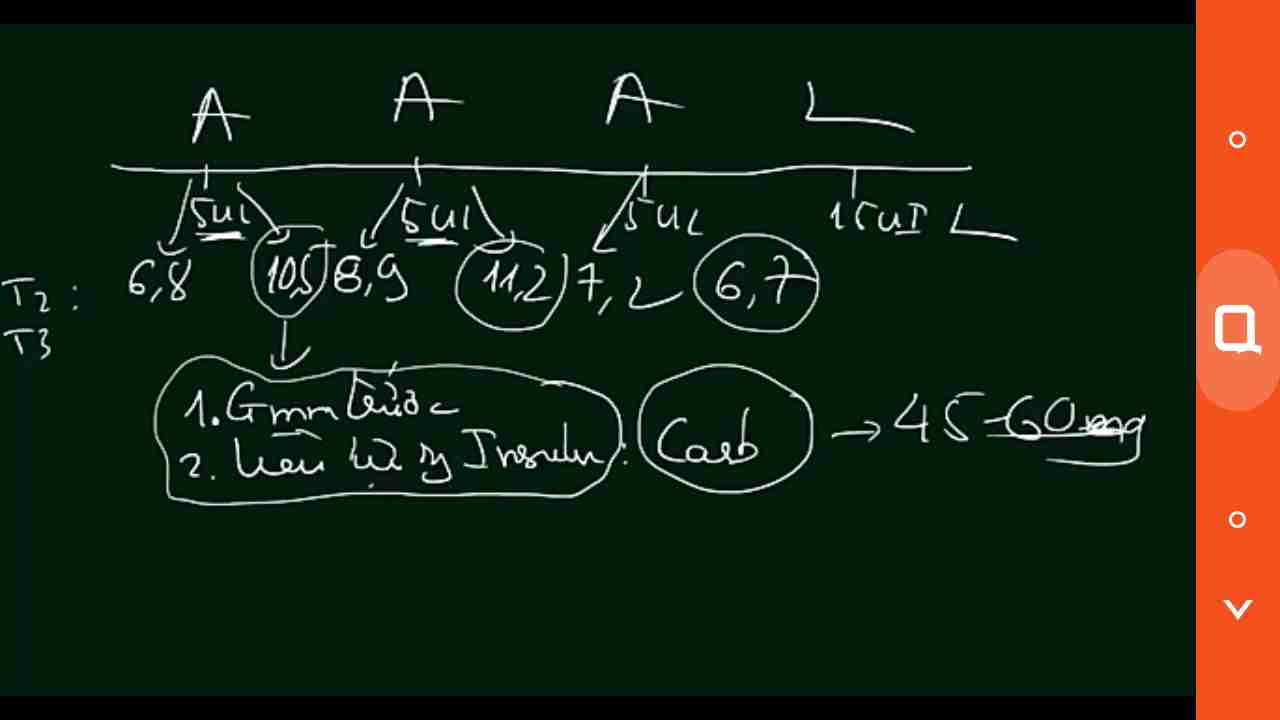 A A A L
5UI 5UI 5UI 15UI L
T2: 6,8 10,5 8,9 11,2 7,2 6,7
T3
1. Gmm trước
2. liều Insulin: Carb → 45-60mg